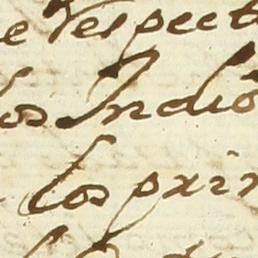 e respect
los Indio
los prin